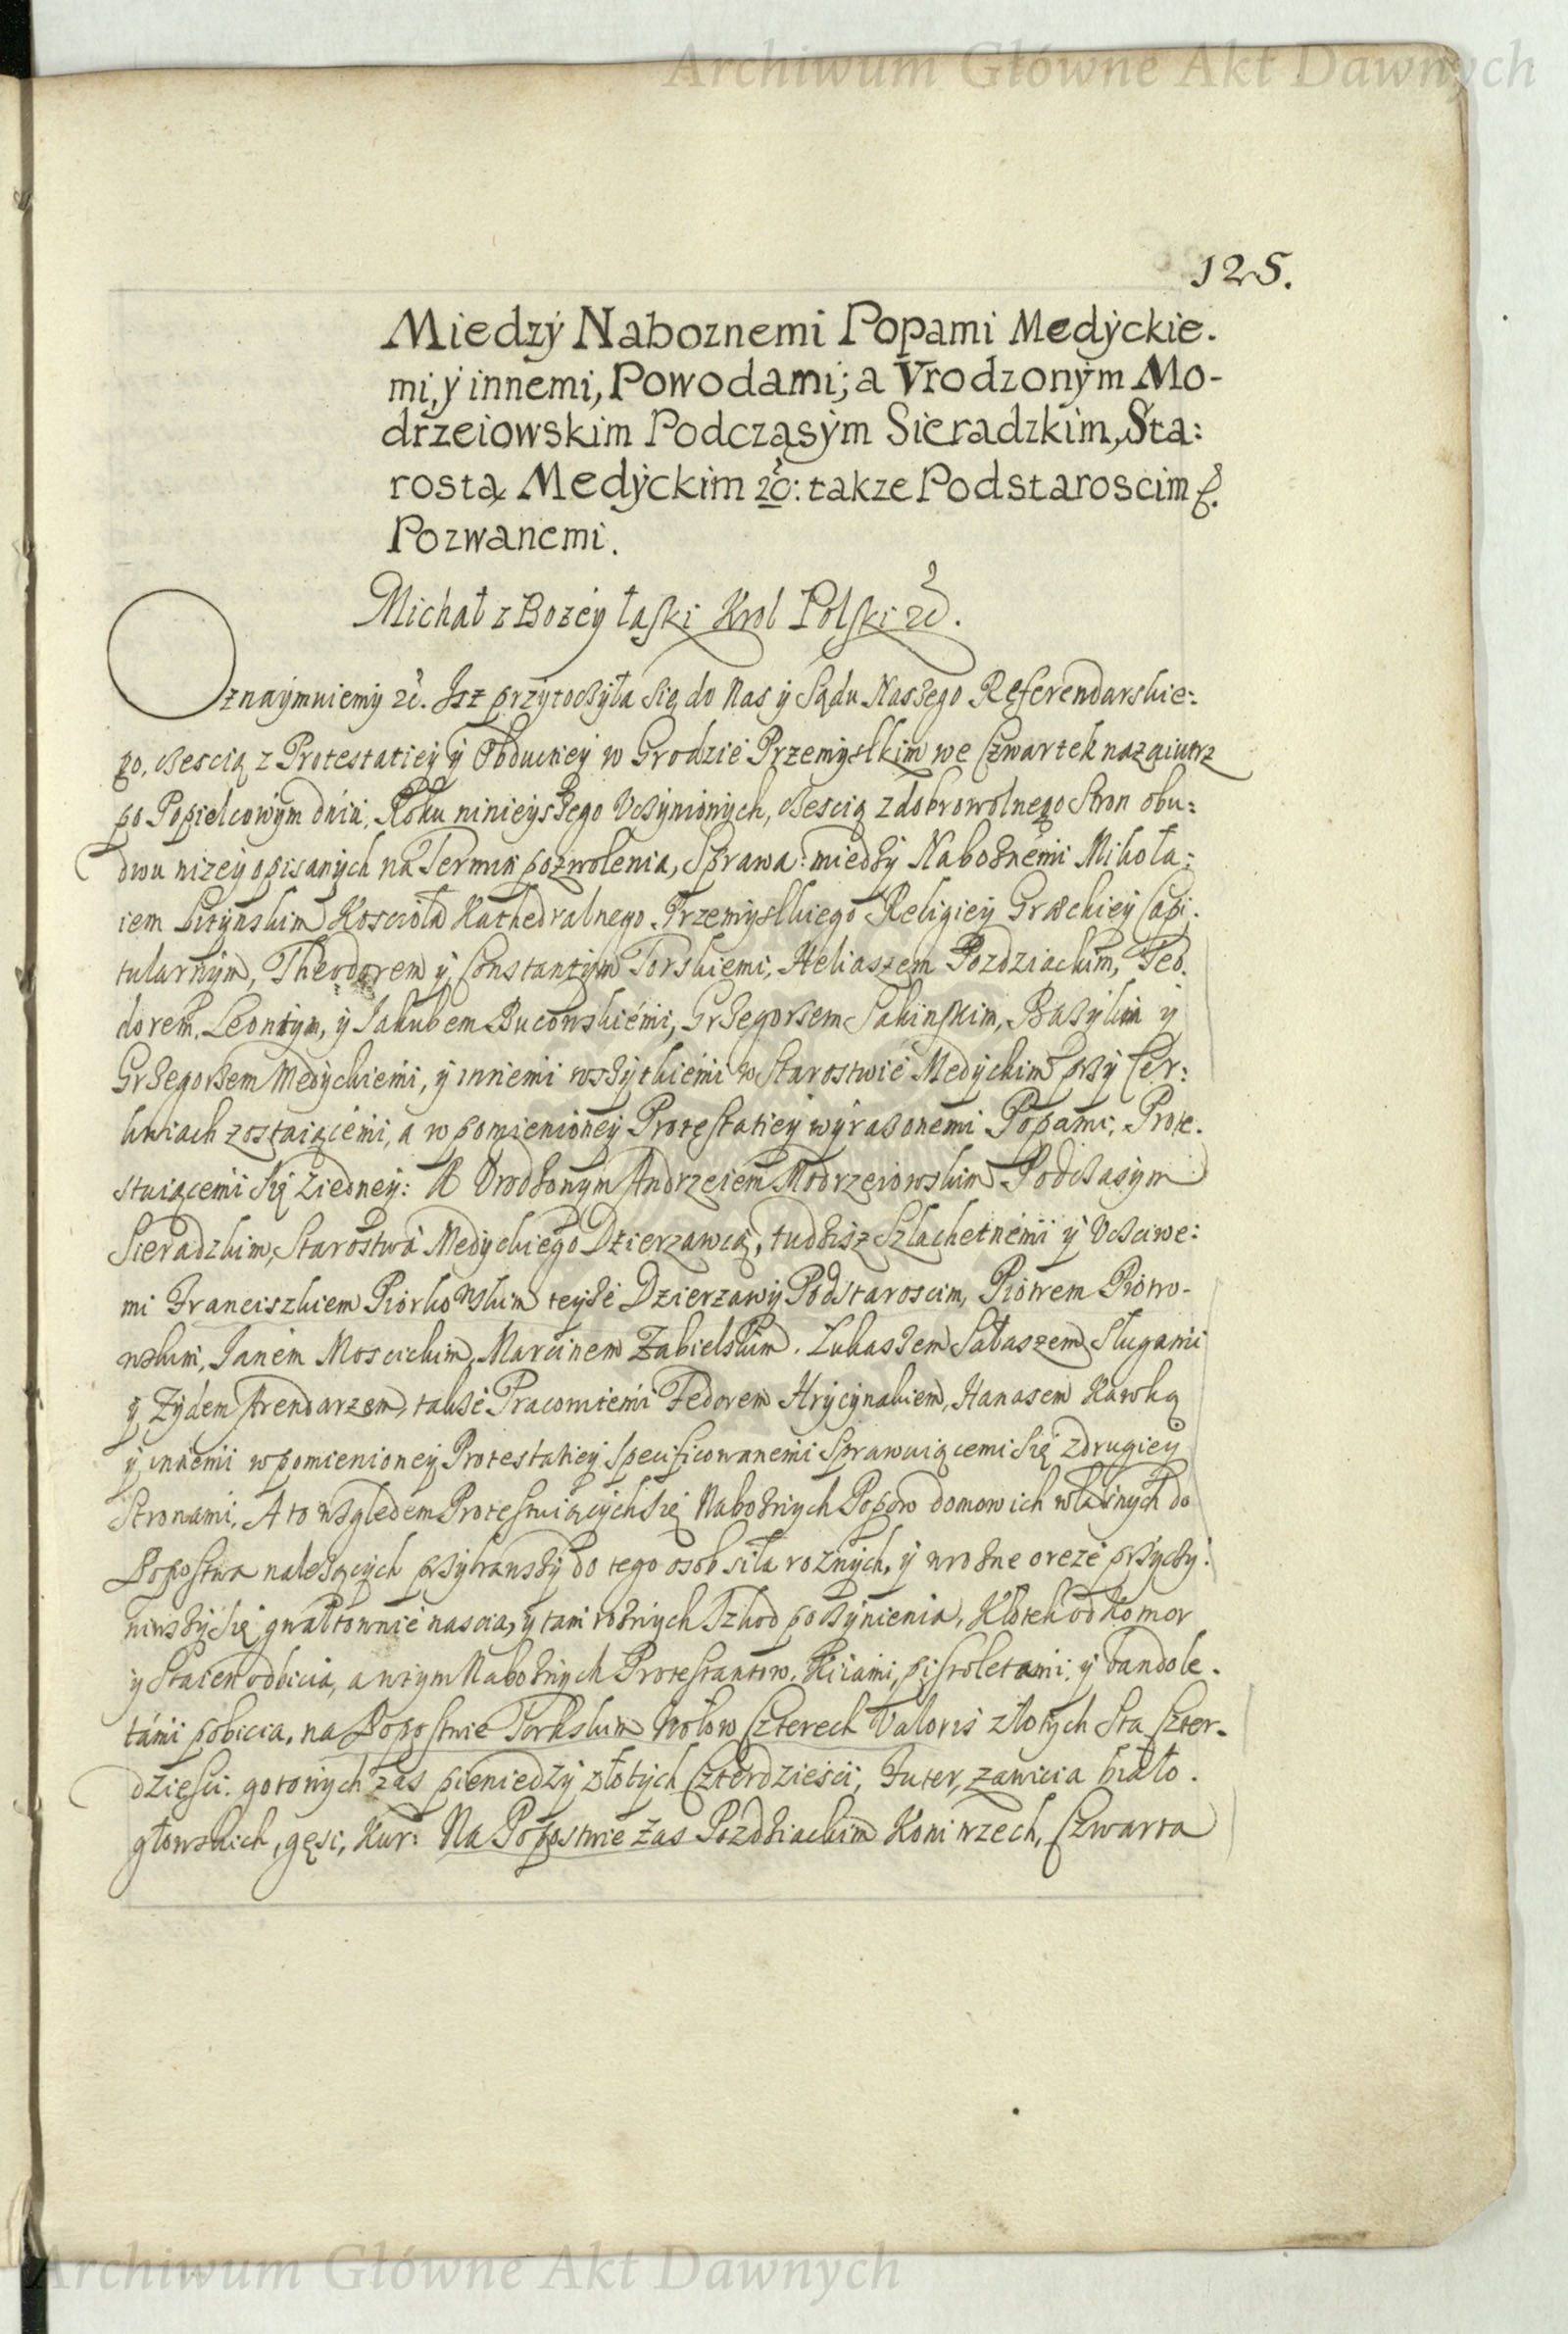 Archiwum Główne Akt Dawnych
125.
Miedzy Naboznemi Popami Medyckie.
mi, y innemi, Powodami; a Vrodzonym Mo-
drzeiowskim Podcząsym Sieradzkim, Sta:
rostą Medyckim &c: takze Podstaroscim &.
Pozwanemi.
Michał z Bozey łaski Krol Polski &c.
Oznaymuiemy &c. Isz przytoczyła się do Nas y Sądu Naszego Referendarskie:
go, czescią z Protestatiey y Obductiey w Grodzie Przemyslkim we Czwartek nazaiutrz
po Popielcowym dniu, Roku ninieyszego Vczynionych, czescią z dobrowolnego Stron obu:
dwu nizey opisanych na Termin pozwolenia, Sprawa: między Naboznemi Mikoła:
iem Kosciola Kathedralnego Przemyslkiego Religiey Græckiey Capi.
tularnym, Theodorem y Constantym Torskiemi, Heliaszem Pozdziackim, Teo.
dorem, Leontym, y Jakubem Bucowskiemi, Grzegorzem Sakinskim, Bazylim y
Grzegorzem Medyckiemi, y innemi wszytkiemi w Starostwie Medyckim przy Cer:
kwiach zostaiącemi, a w pomienioney Protestatiey wyrazonemi Popami, Prote.
stuiącemi się ziedney: A Vrodzonym Andrzeiem Modrzeiowskim Podczasym
Sieradzkim, Starostwa Medyckiego Dzierzawcą, tudzisz Szlachetnemi y Vczciwe:
mi Franciszkiem Piorkowskim teyze Dzierzawy Podstaroscim, Piotrem Piotro-
wskim, Janem Moscickim, Marcinem Zabielskim. Lukaszem Sałaszem Sługami
y Zydem Arendarzem, takze Pracowitemi Fedorem Hrycynakiem, Hanasem Kawką
y innemi w pomienioney Protestatiey specificowanemi Sprawuiącemi się zdrugiey
Stronami. A to względem Protestuiących się Naboznych Popow domow ich własnych do
Popostwa nalezących przybrawszy do tego osob siła roznych, y wrozne oręze przyczy:
niwszy się gwałtownie nascia, y tam roznych Szkod poczynienia, Kłotek od Komor
y Staien odbicia, a w tym Naboznych Protestantow. Kiiami, pistoletami, y bandole.
tami pobicia, na Popostwie Torkskim Wołow Czterech Valoris złotych Sta Czter.
dziesci. gotowych zas pieniedzy złotych Czterdziesci, Futer, zawicia biało.
głowskich, gęsi, Kur: Na Popostwie zas Pozdziackim Koni trzech, Czwarta
Archiwum Główne Akt Dawnych